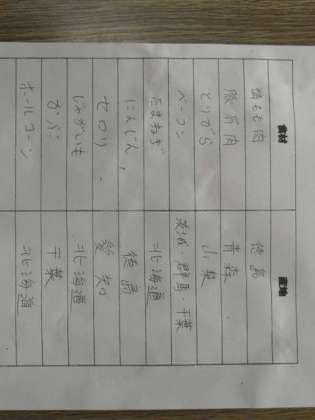 食材 産地
鶏もも肉 徳島
青森
とりがら 山梨
ベーコン 茨城・群馬・千葉
たまねぎ 北海道
にんじん 徳島
セロリ 愛知
じゃがいも 北海道
かぶ 千葉
ホールコーン 北海道